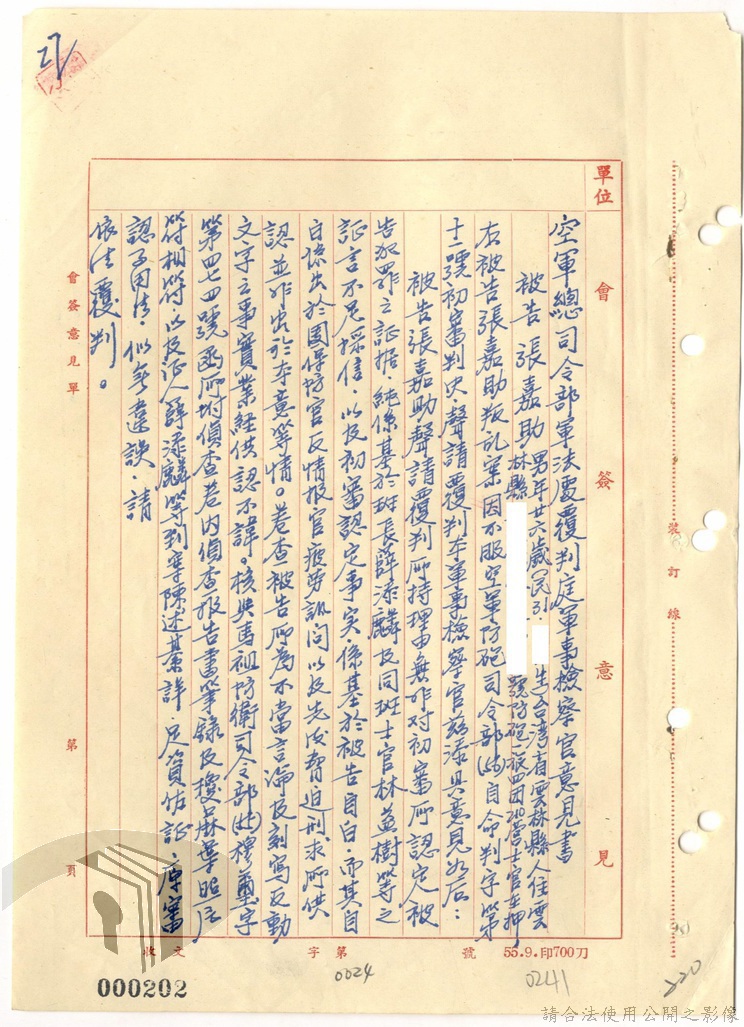 27/
單位　會簽意見
空軍總司令部軍法處覆判庭軍事檢察官意見書
被告張嘉助　男年廿六歲(民31. 生)台灣省雲林縣人住雲
林縣 號防砲旅四團 營士官在押
右被告張嘉助叛乱案因不服空軍防砲司令部(56)自命判字第
十二號初審判決.聲請覆判本軍事檢察官茲添具意見如后：
被告張嘉助聲請覆判所持理由無非对初審所認定被
告犯罪之証据.純係基於班長薛添麟及同班士官林 樹等之
証言不足採信.以及初審認定事实.係基於被告自白.而其自
白係出於國保防官反情报官疲勞訊问以及先后脅迫刑求所供
認並非出於本意等情。卷查被告所為不當言論及刻寫反動
文字之事實業経供認不諱。核與馬祖防衛司令部(56) 字
第四七四號函所附偵查卷内偵查报告書筆錄及 蔴葉照片
符相符.以及证人薛添麟等到案陳述綦詳.足資佐証.原審
認了用法.似無違誤.請
依法覆判。
會簽意見單
第　頁
裝訂線
收文　字第　號
55.9.印700刀
0024
0241
220
000202
請合法使用公開之影像